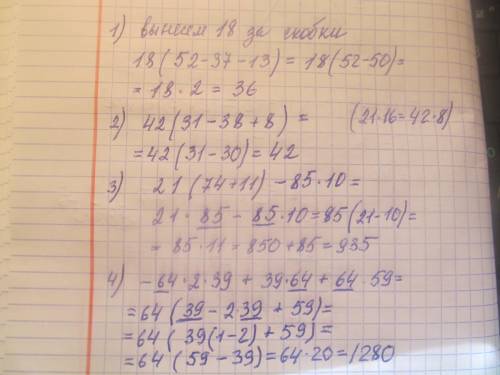 1) вынесем 18 за скобки
18(52-37-13) = 18(52-50)=
= 18·2 = 36
2) 42(31-38+8) = (21·16=42·8)
=42(31-30)=42
3) 21(74+11)-85·10=
21·85-85·10=85(21-10)=
= 85·11=850+85=935
4) -64·2·39 + 39·64 + 64·59=
=64(39-2·39+59)=
=64(39(1-2)+59)=
=64(59-39)=64·20=1280